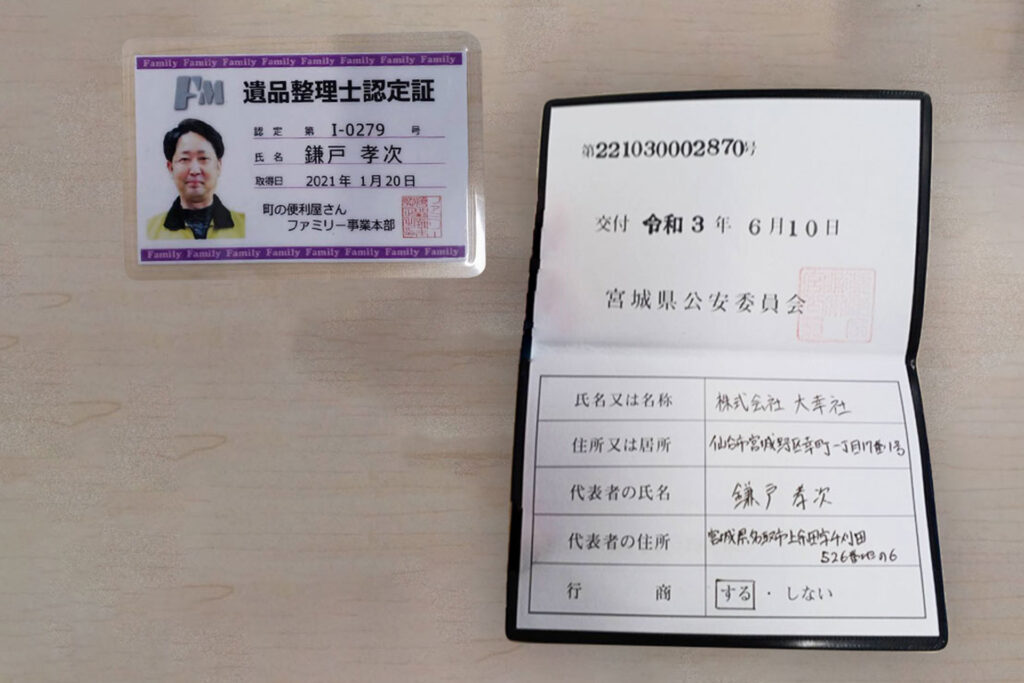 Family Family Family Family Family Family Family Family
FM 遺品整理士認定証
認定 第 I-0279 号
氏名 鎌戸 孝次
取得日 2021年 1月20日
町の便利屋さん
ファミリー事業本部
Family Family Family Family Family Family Family Family
第221030002870号
交付 令和 3 年 6月10日
宮城県公安委員会
氏名又は名称 株式会社 大幸社
住所又は居所 仙台市宮城野区幸町一丁目17番1号
代表者の氏名 鎌戸 孝次
代表者の住所 宮城県名取市上余田字千刈田
526番地の6
行商 する・しない